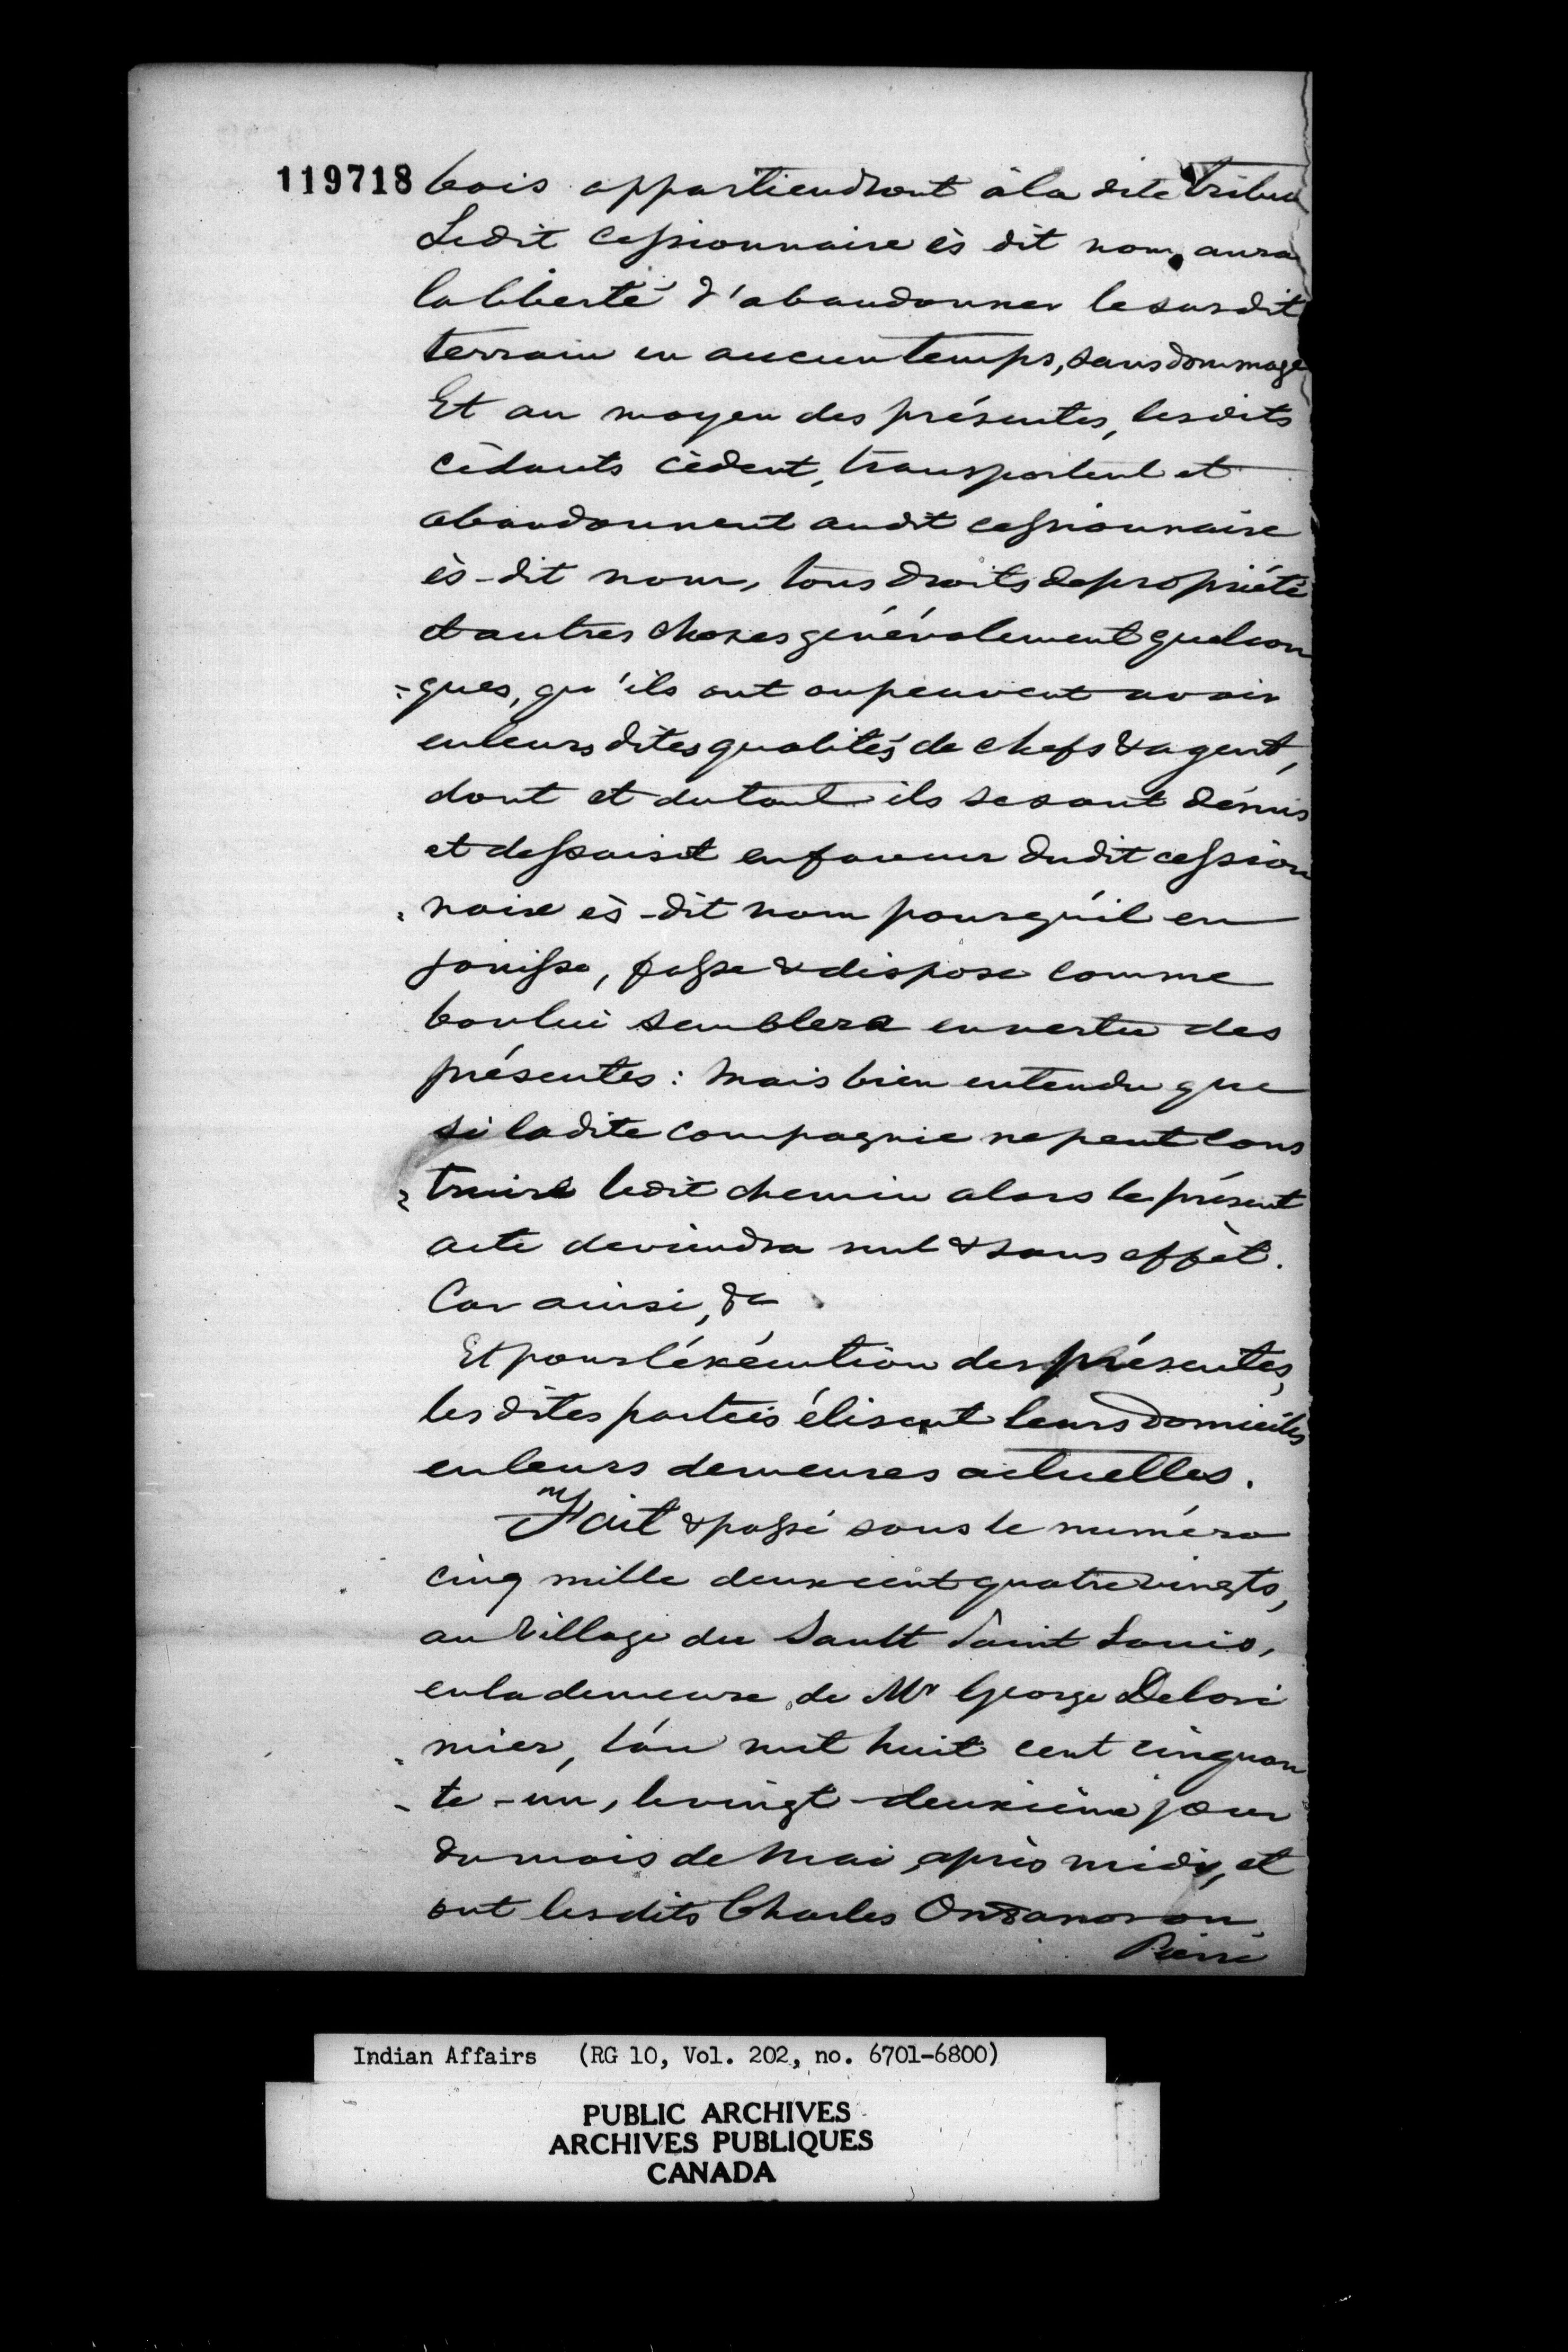 119718
bois appartiendront à la dite Tribu
Ledit cessionnaire ès dit nom, aura
la liberté d'abandonner le susdit
terrain en aucun temps, sans dommage
Et au moyen des présentes, lesdits
cédants cèdent, transportent et
abandonnent audit cessionnaire
ès-dit nom, tous droits de propriété
et autres choses généralement quelcon
=ques, qu'ils ont ou peuvent avoir
en leurs dites qualités de chefs & agent,
dont et du tout ils se sont démis
et dessaisit en faveur dudit cession
=naire ès-dit nom pour qu'il en
jouisse, fasse & dispose comme
bon lui semblera en vertu des
présentes: Mais bien entendu que
si ladite Compagnie ne peut cons
=truire ledit chemin alors le présent
acte deviendra nul & sans effèt.
Car ainsi, &c
Et pour l'éxécution des présentes,
les dites parties élisent leurs domiciles
en leurs demeures actuelles.
Fait & passé sous le numéro
cinq mille deux cent quatre vingts,
au Village du Sault Saint Louis,
en la demeure de Mr George Delori
=mier, l'an mil huit cent cinquan
=te-un, le vingt-deuxième jour
du mois de Mai, après midi, et
ont lesdits Charles
Pierre
Indian Affairs (RG 10, Vol. 202, no. 6701-6800)
PUBLIC ARCHIVES
ARCHIVES PUBLIQUES
CANADA